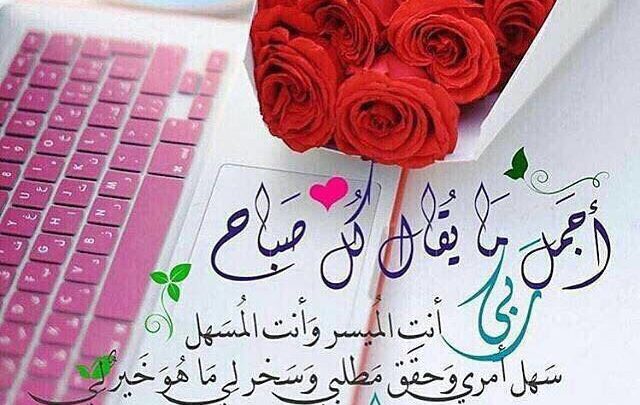 أجمَلَ مَا يُقال كُل صَباح
ربي أنت المُيسر وَأنت المُسَهل
سَهل أمري وَحقق مَطلبي وَسَخر لي مَا هُوَ خَير لي